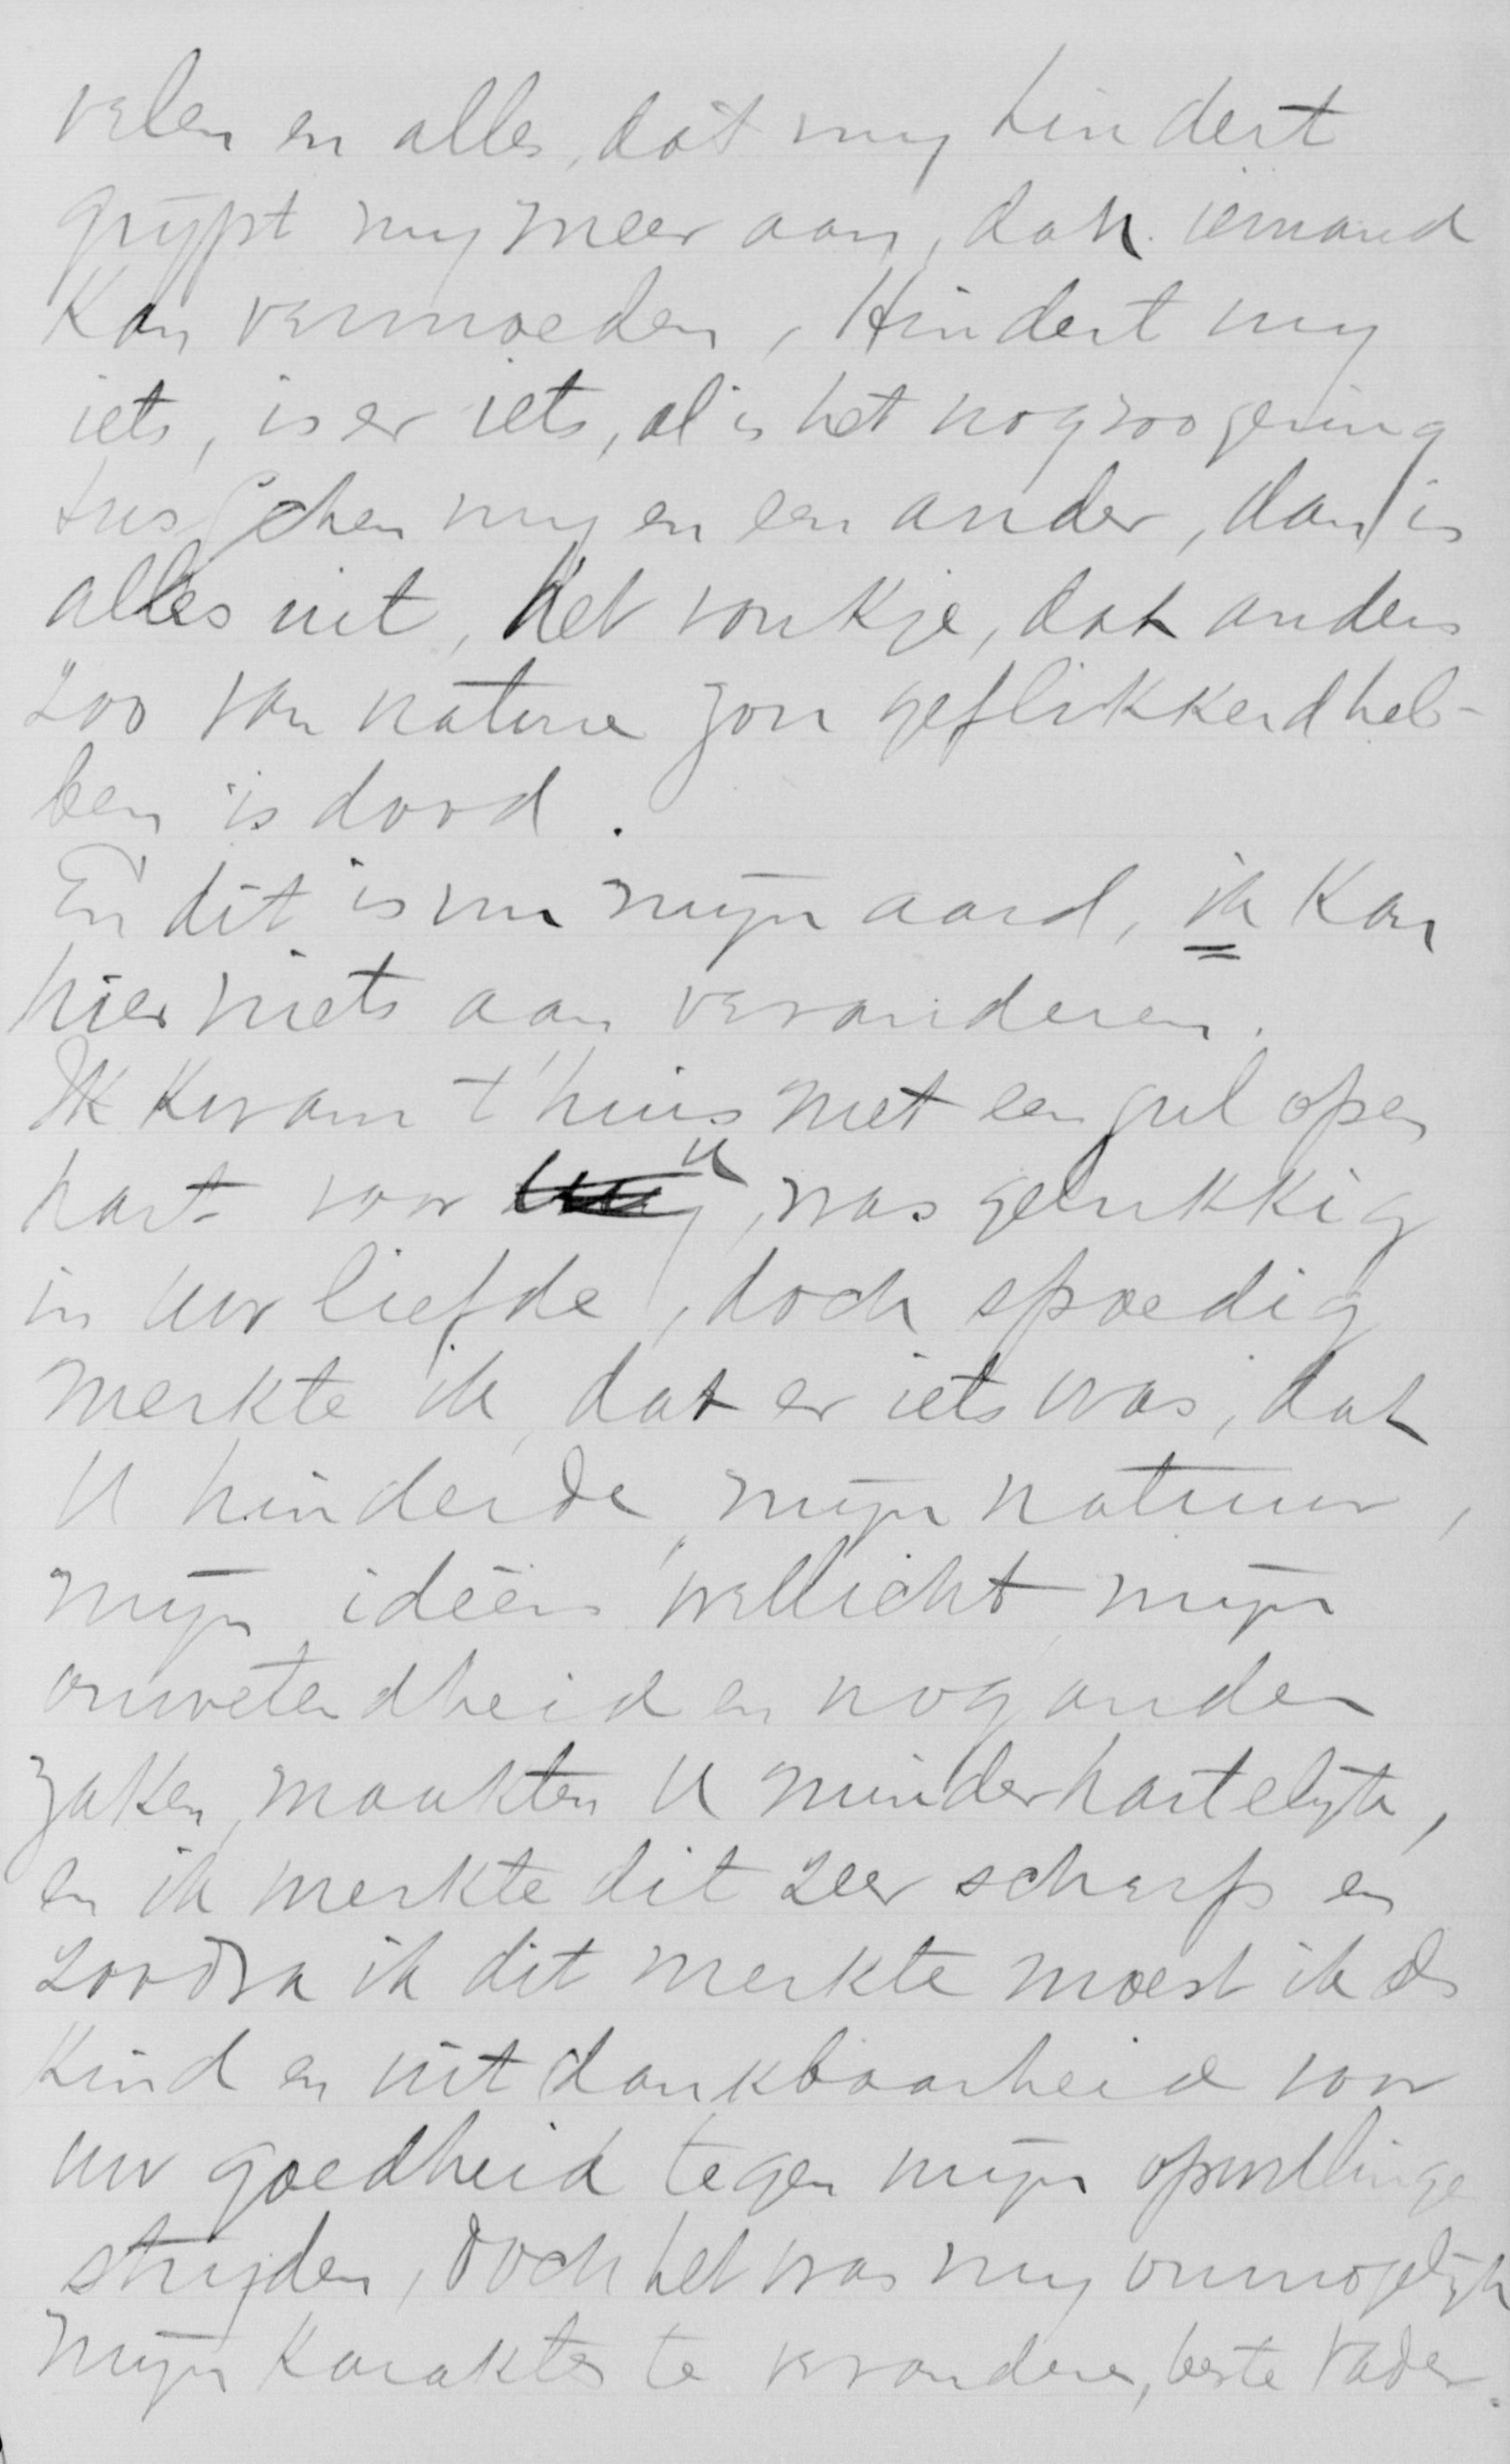 velen en alles, dat my hindert
grypt my meer aan, dan iemand
kan vermoeden, Hindert my
iets, is er iets, al is het nog zoo gering
tusschen my en een ander, dan is
alles uit, het vonkje, dat anders
zoo van nature zou geflikkerd heb-
ben is dood.
En dit is nu mijn aard, ik kan
hier niets aan veranderen.
Ik kwam t'huis met een gul open
hart voor u, was gelukkig
in uw liefde, doch spoedig
merkte ik, dat er iets was, dat
U hinderde, mijn natuur,
mijn idëen wellicht mijn
onwetendheid en nog andere
zaken, maakten U minder hartelyk,
en ik merkte dit zeer scherp en
zoodra ik dit merkte moest ik als
kind en uit dankbaarheid voor
uw goedheid tegen mijn opwellingen
stryden, doch het was my onmogelijk
mijn karakter te veranderen, beste Vader.